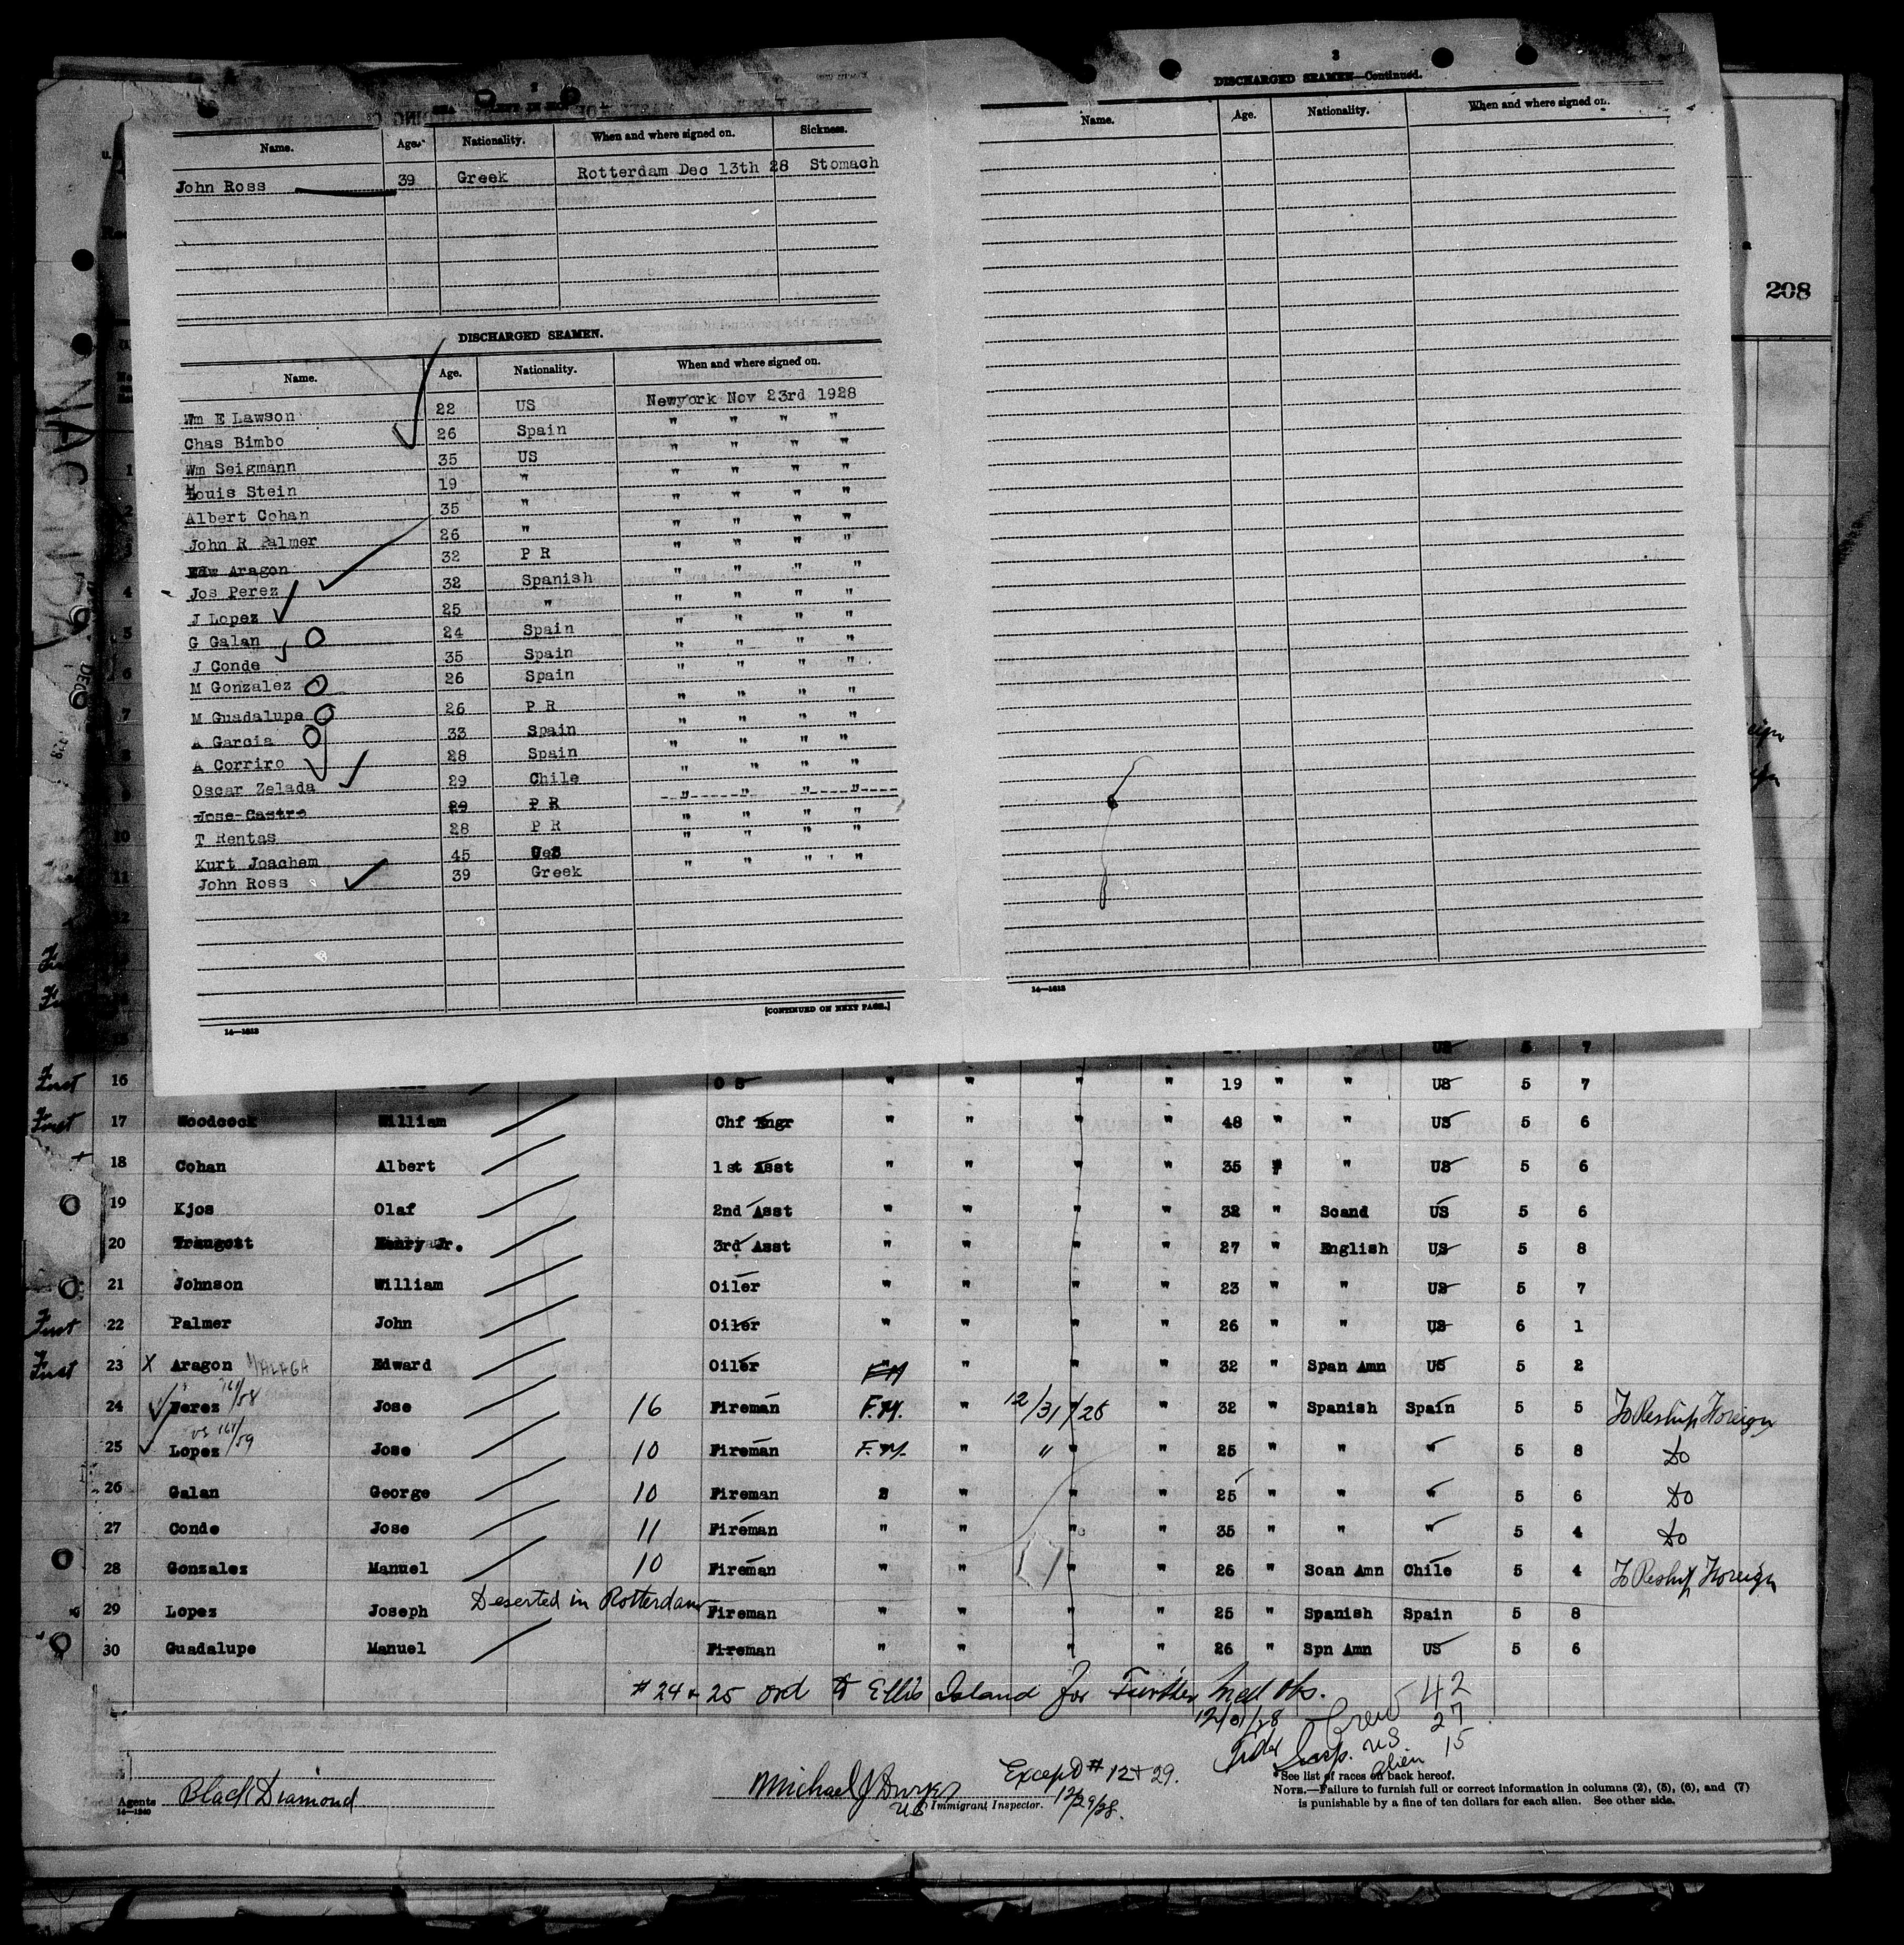 2
Name. Age. Nationality. When and where signed on. Sickness.
John Ross 39 Greek Rotterdam Dec 13th 28 Stomach
DISCHARGED SEAMEN.
Name. Age. Nationality. When and where signed on.
Wm E Lawson 22 US Newyork Nov 23rd 1928
Chas Bimbo 26 Spain " " " "
Wm Seigmann 35 US " " " "
Louis Stein 19 " " " " "
Albert Cohan 35 " " " " "
John R Palmer 26 " " " " "
Edw Aragon 32 P R " " " "
Jos Perez 32 Spanish " " " "
J Lopez 25 " " " " "
G Galan 24 Spain " " " "
J Conde 35 Spain " " " "
M Gonzalez 26 Spain " " " "
M Guadalupe 26 P R " " " "
A Garcia 33 Spain " " " "
A Corriro 28 Spain " " " "
Oscar Zelada 29 Chile " " " "
Jose Castro 29 P R " " " "
T Rentas 28 P R " " " "
Kurt Joachem 45 " " " "
John Ross 39 Greek " " " "
[CONTINUED ON NEXT PAGE.]
14—1613
2
DISCHARGED SEAMEN—Continued.
Name. Age. Nationality. When and where signed on.
14—1613
208
US 5 7
First 16 O S " " " " 19 " " US 5 7
First 17 Woodcock William Chf Engr " " " " 48 " " US 5 6
18 Cohan Albert 1st Asst " " " " 35 " " US 5 6
19 Kjos Olaf 2nd Asst " " " " 32 " Scand US 5 6
20 Trangott Henry Jr. 3rd Asst " " " " 27 " English US 5 8
21 Johnson William Oiler " " " " 23 " " US 5 7
First 22 Palmer John Oiler " " " " 26 " " US 6 1
First 23 X Aragon MALAGA Edward Oiler " " " 32 " Span Amn US 5 2
161/58
24 Perez Jose 16 Fireman F.M. " 12/31/28 " 32 " Spanish Spain 5 5 To Reship Foreign
vs 161/59
25 Lopez Jose 10 Fireman F.M. " " " 25 " " " 5 8 Do
26 Galan George 10 Fireman " " " 25 " " " 5 6 Do
27 Conde Jose 11 Fireman " " " " 35 " " " 5 4 Do
28 Gonzales Manuel 10 Fireman " " " " 26 " Soan Amn Chile 5 4 To Reship Foreign
29 Lopez Joseph Deserted in Rotterdam Fireman " " " " 25 " Spanish Spain 5 8
30 Guadalupe Manuel Fireman " " " " 26 " Spn Amn US 5 6
# 24 & 25 ord to Ellis Island for Further Med Obs.
12/31/28
Crew 42
US 27
Alien 15
Agents Black Diamond
14—1240
Michael J
US Immigrant Inspector.
Except # 12 + 29.
12/29/28.
*See list of races on back hereof.
NOTE.—Failure to furnish full or correct information in columns (2), (5), (6), and (7)
is punishable by a fine of ten dollars for each alien. See other side.